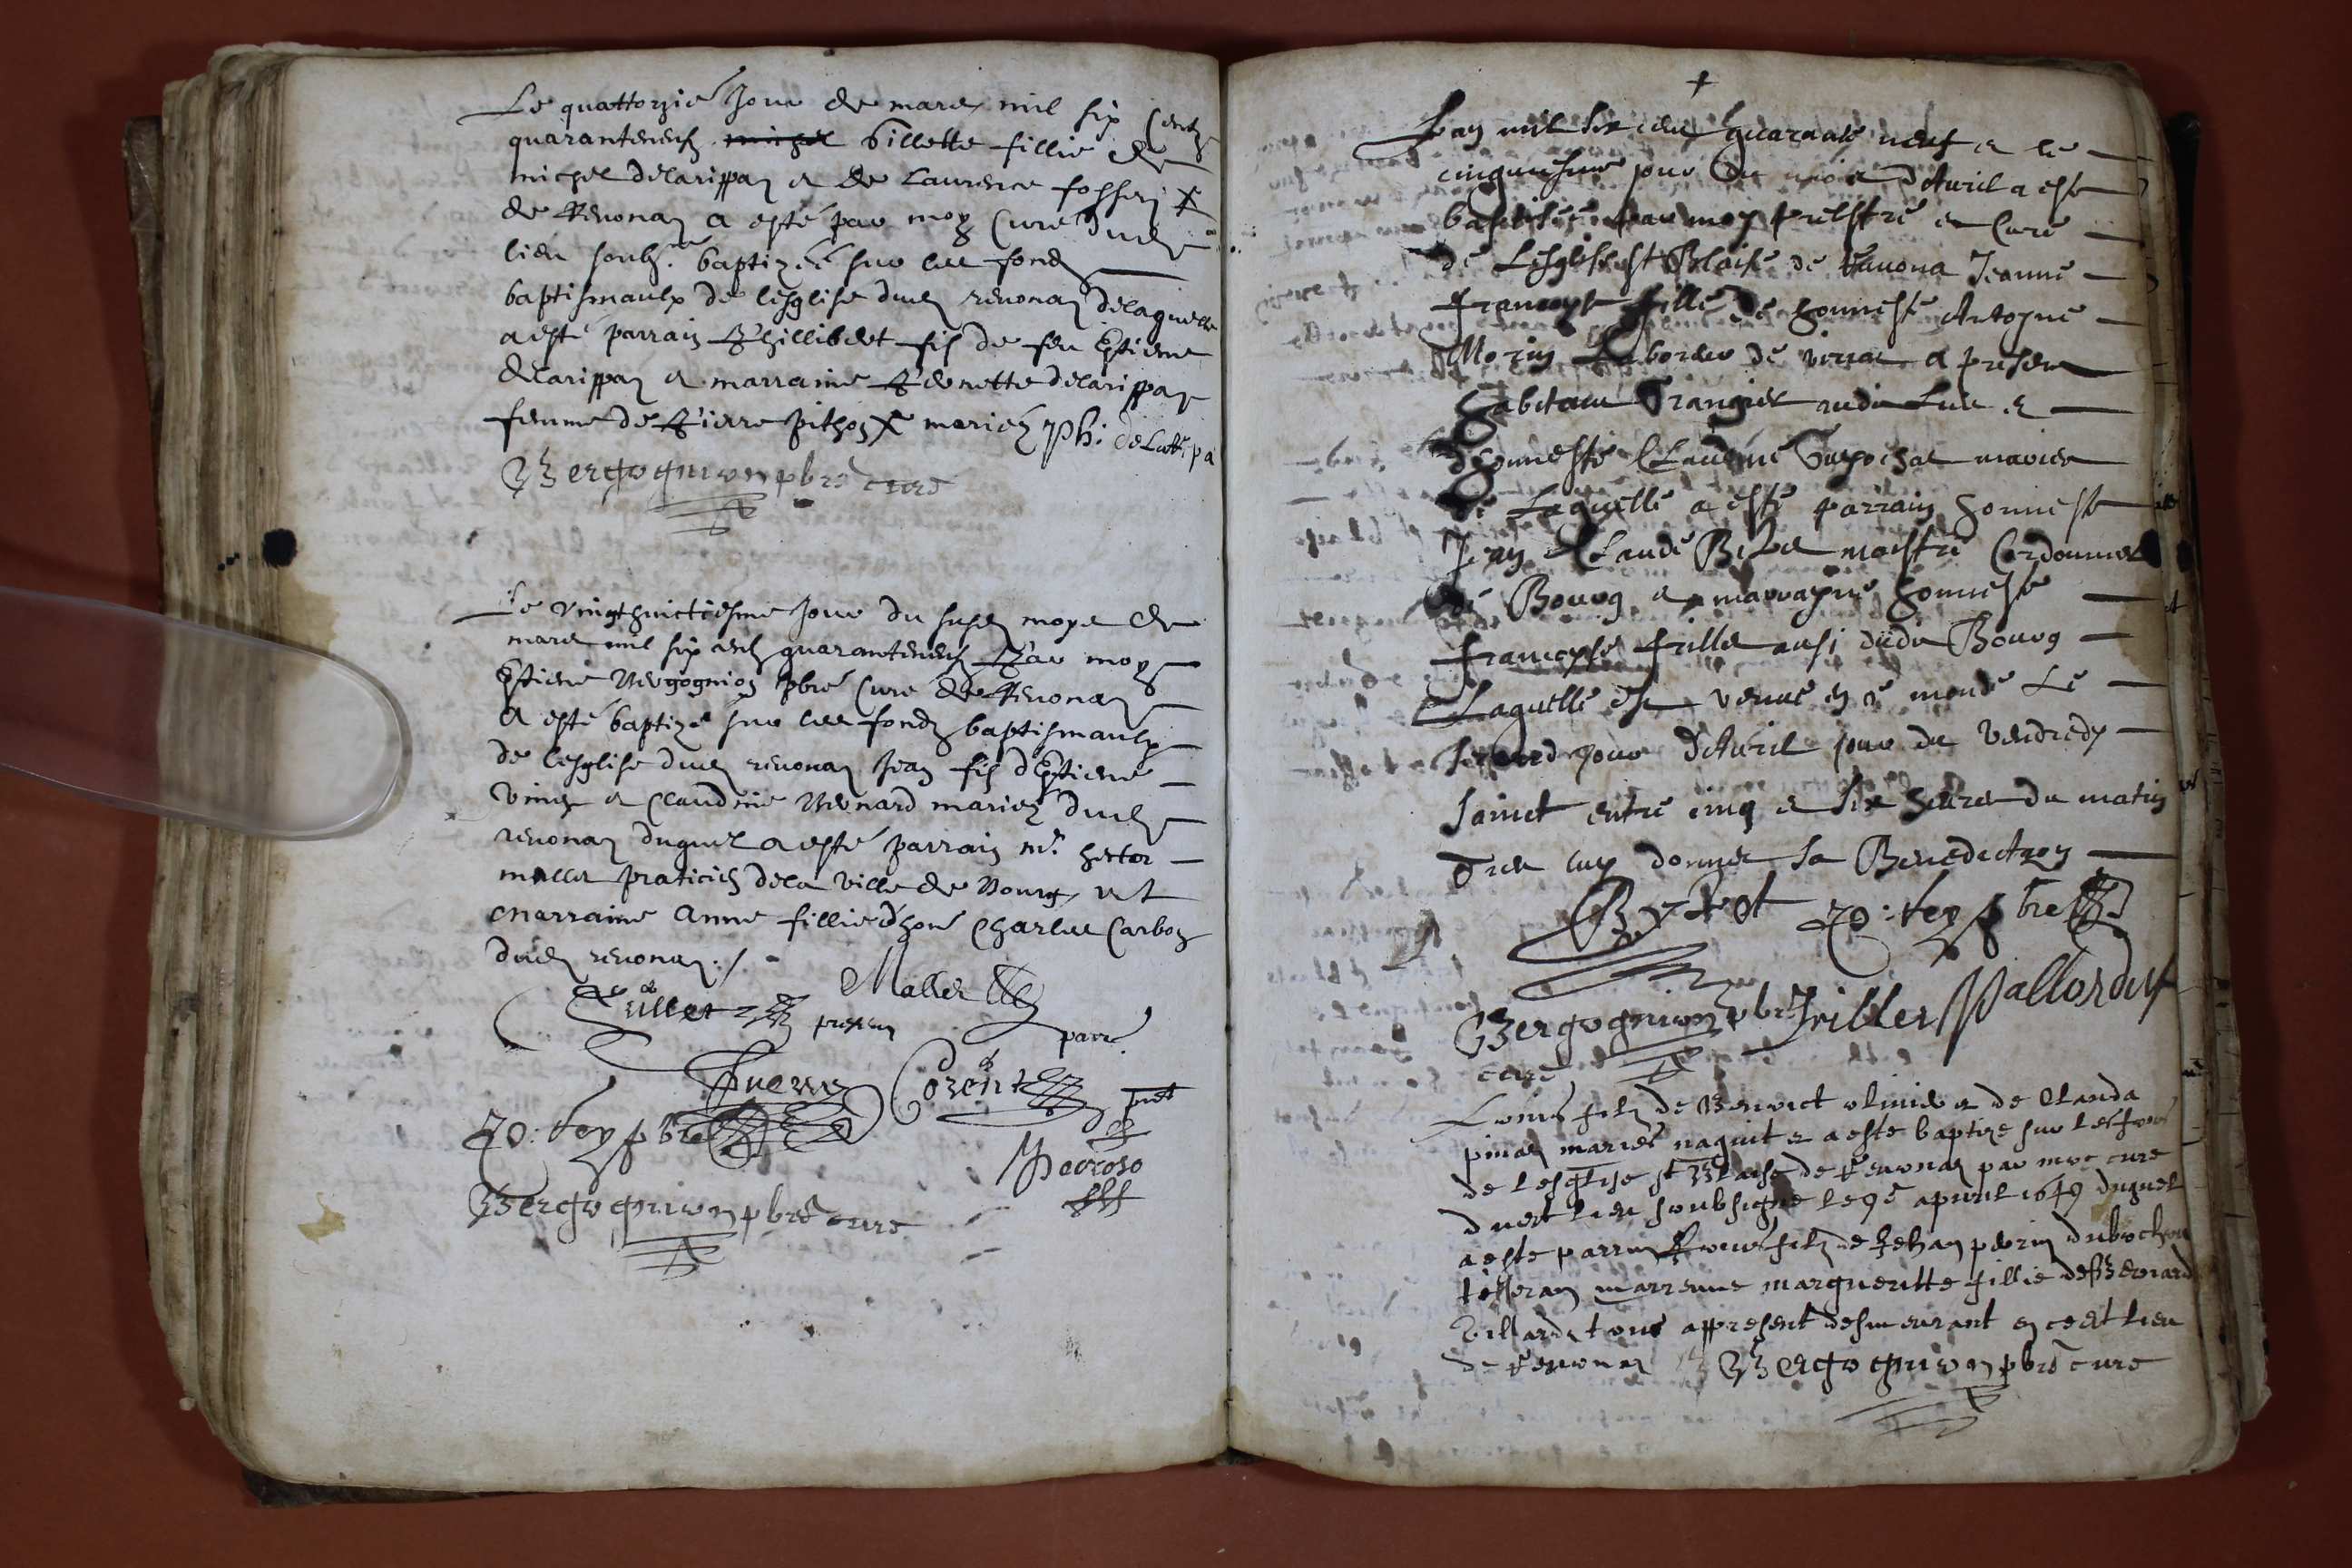 Le quattorzie Jour de mars mil six Centz
quaranteneufz michel billette fillie de
michel delarippaz et de Laurence fosserj X
de Revonaz a esté par moy Curé dud
lieu soubz.né baptizéé sur les fondz
baptismaulx de lesglise dud revonaz delaquelle
a esté parrain Phillibert fil de feu Estienne
delarippaz et marraine Pernette delarippaz
femme de Pierre pithoz X mariez Ph: delari pa
Bergognion pbre curé
Le vingthuictiesme Jour du susd moys de
mars mil six centz quaranteneufz Par moy
Estiene Bergognion pbre Curé de Revonaz
a esté baptizé sur les fondz baptismaulx
de lesglise dud revonaz Jean fil d'Estiene
et Claudine Bernard mariez dud
revonaz duquel a esté parrain mr. hector
maller praticien de la ville de Bourg, et
marraine Anne fillie d'hon Charles Carboz
dud revonaz ./
Maller
present parr
Corent
Jo: tey pbre pnt
Perroso
Bergognion pbre curé
+
Lan mil six cens quarante neuf et le
cinquiesme jour du mois d'Avril a este
baptisée par moy prestre et Curé
de Lesglise st Blaise de Revona Jeanne
francoyse fille de honneste Antoyne
Morin de a present
habitant Grangier audit Lieu et
d'honneste Claudine mariez
de Laquelle a esté parrain honneste
Jean Claude maistre Cordonnier
de Bourg et marrayne honneste
francoyse frille ausi dudit Bourg
Laquelle est venue en ce monde Le
second jour d'Avril jour du vendredy
sainct entre cinq et six heures du matin
Dieu luy donner sa Benedictyon
Jo: tey pbre
Bergognion pbre Friller Pallordet
curé
Louis filz de Benoict olinier et de Clauda
pinaz mariés naquit et a esté baptizé sur les fons
de lesglise st Blaise de Revonaz par moy curé
dudit lieu soubsigné le 9e apvril 1649 duquel
a esté parrin Louis filz de Jehan perrin dubochou
tisseran marrenne margueritte fillie de Bernard
Billardet tous appresent desmeurant en cedit lieu
de Revonaz Bergognion pbre curé